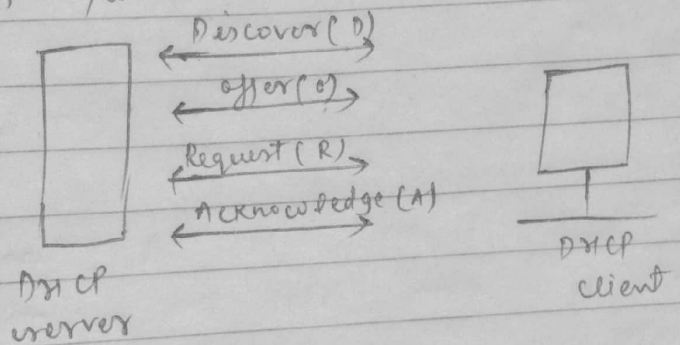 Discover(D)
offer(o)
Request(R)
Acknowledge(A)
DHCP
server
DHCP
client